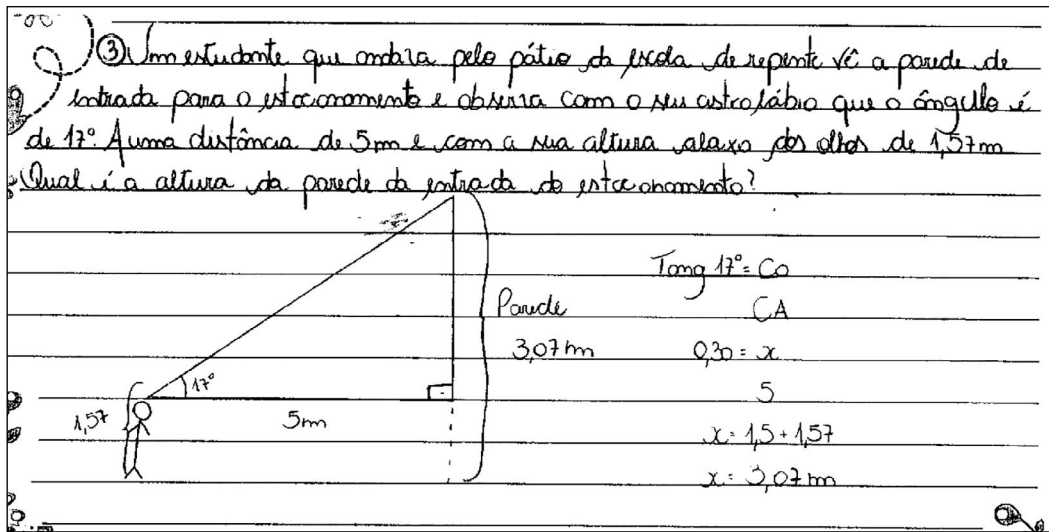 ③ Um estudante que andava pelo pátio da escola de repente vê a parede de
entrada para o estacionamento e observa com o seu astrolábio que o ângulo é
de 17º. A uma distância de 5m e com a sua altura abaxo dos olhos de 1,57m
Qual é a altura da parede da entrada do estacionamento?
Tang 17º = CO
Parede CA
3,07m 0,30 = x
17º 5
1,57 5m x = 1,5 + 1,57
x = 3,07m